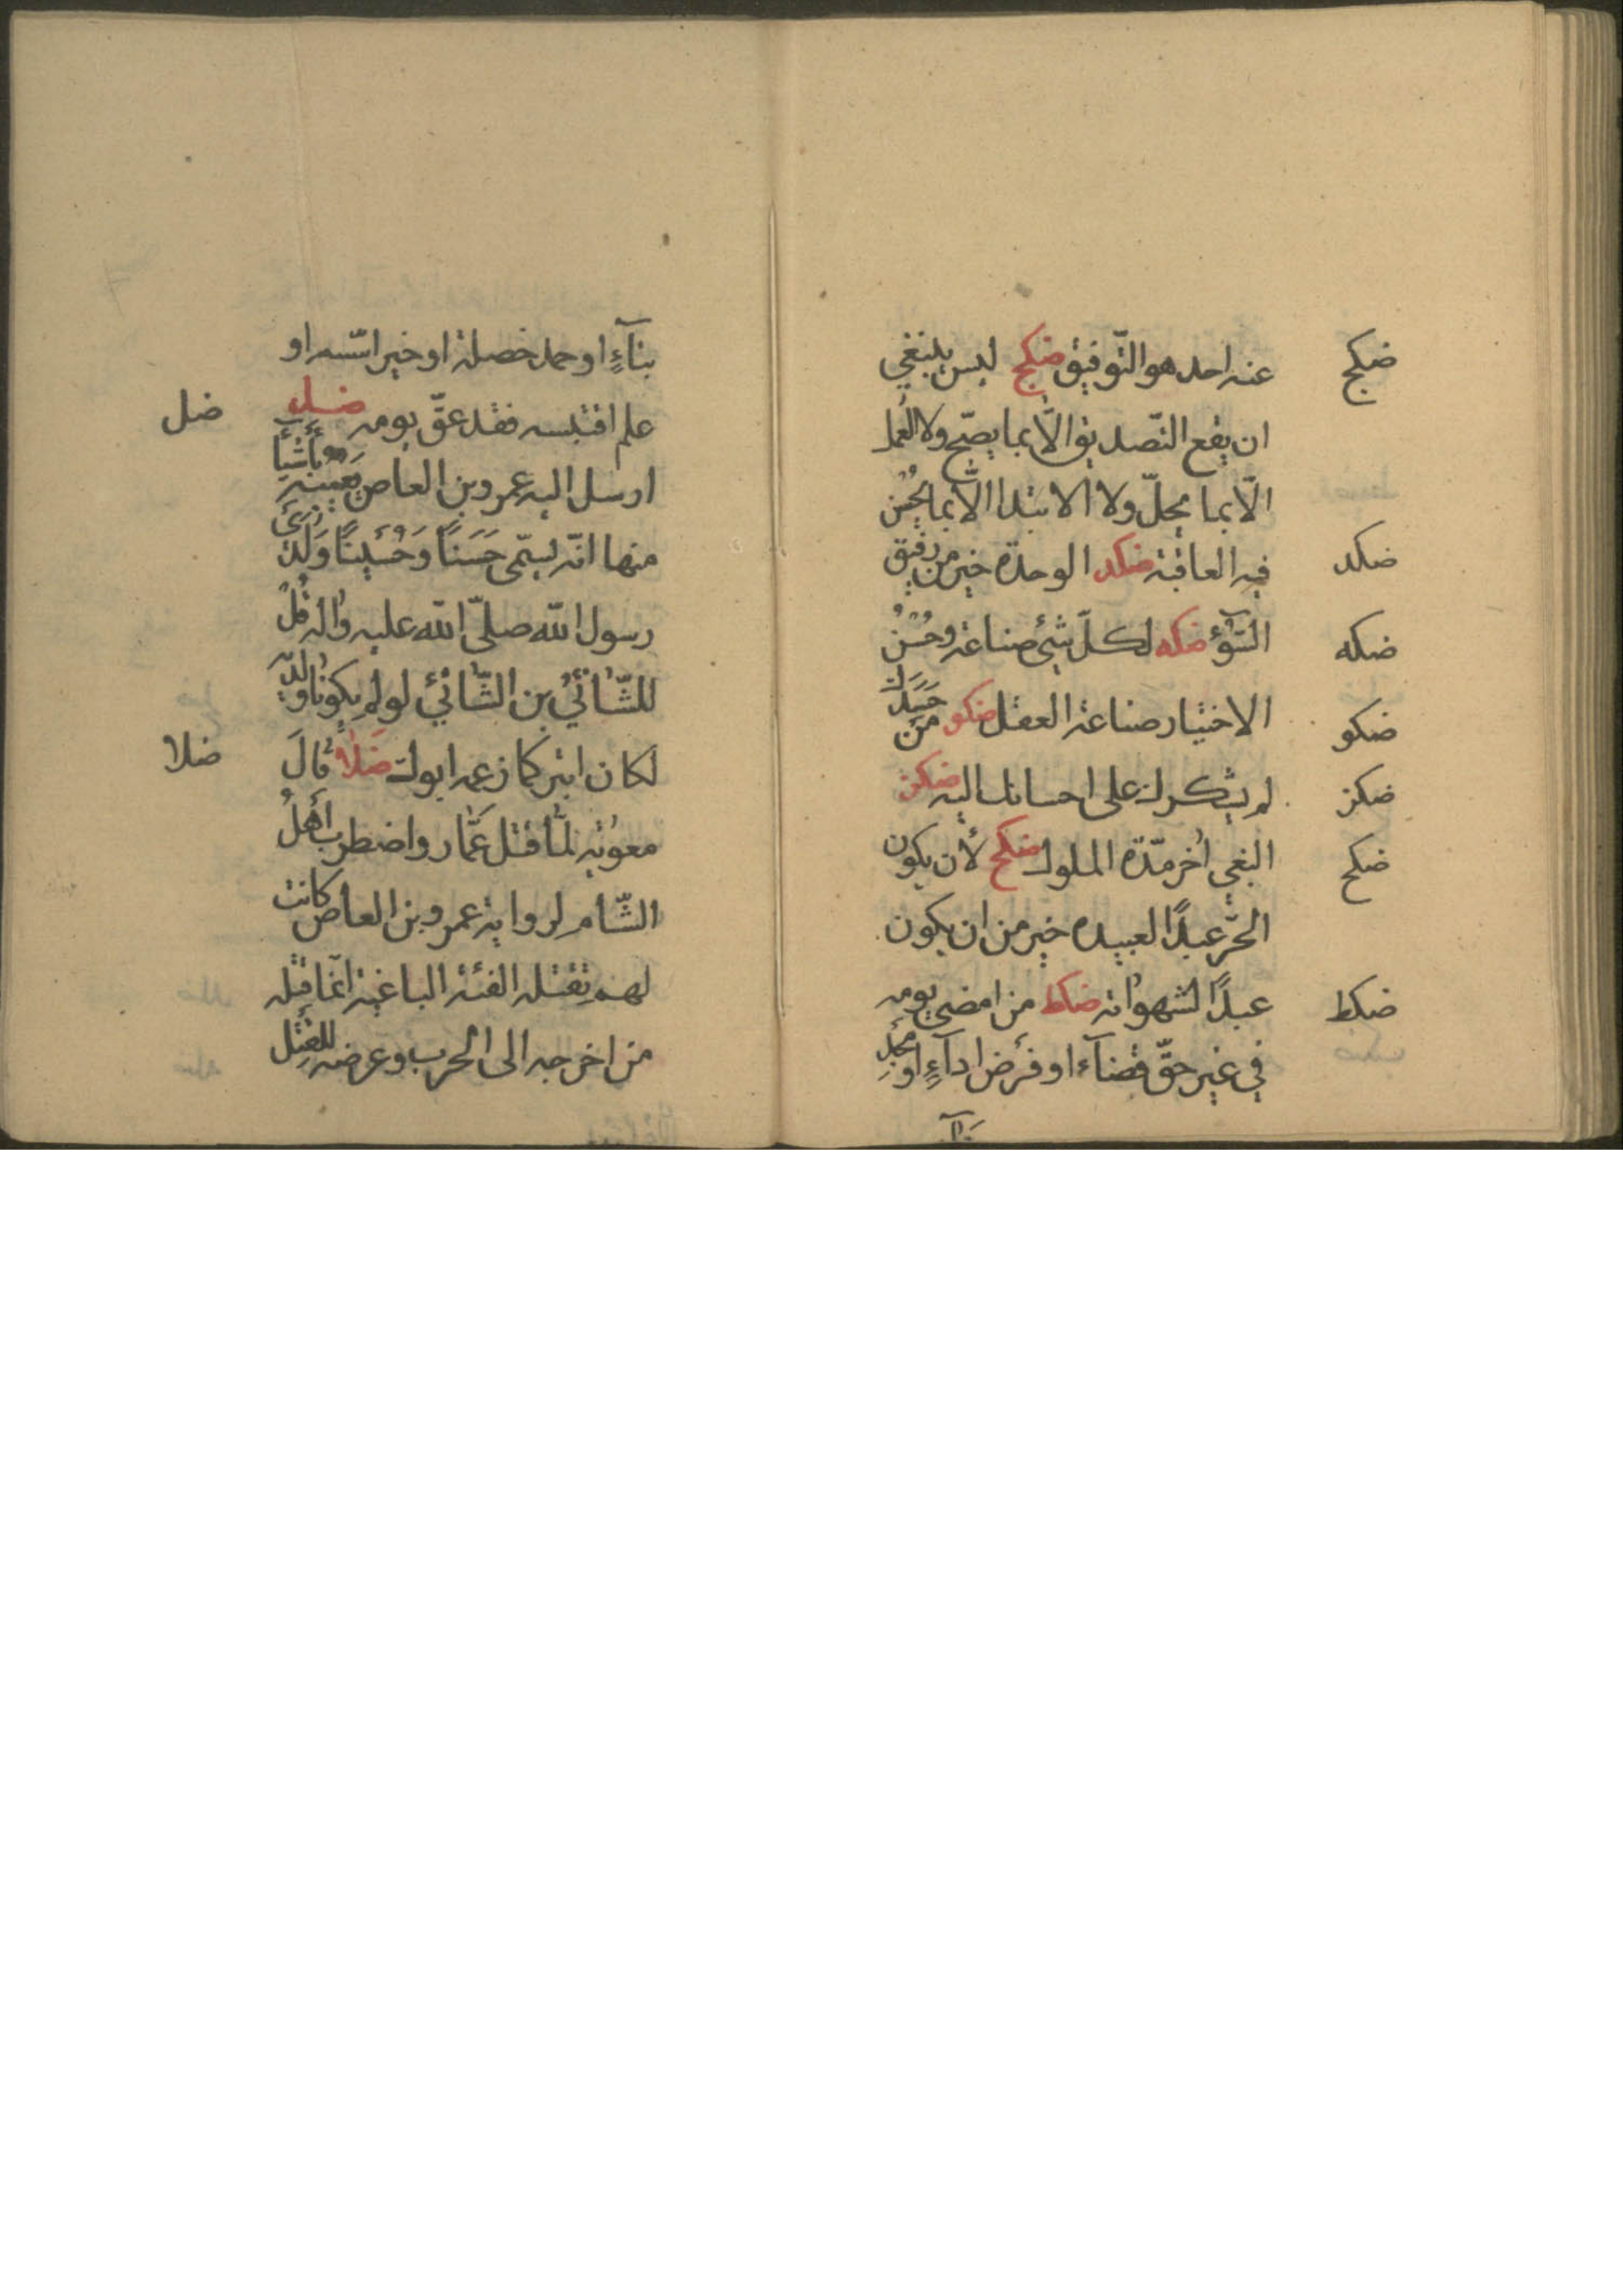 عنه احد هو التّوفيق ضكج ليس ينبغي
ضكج
ان يقع التّصديق الّا بما يصحّ ولا العمل
الّا بما يحلّ ولا الابتدا الّا بما يحسن
فيه العاقبة ضكد الوحدة خير من رفيق
ضكد
السّوٓء ضكه لكلّ شئ صناعة وحُسْنُ
ضكه
الاختيار صناعة العقل ضكو من حَسَدَكَ
ضكو
لم يشكرك على احسانك اليه ضكز
ضكز
البغي اخر مدّة الملوك ضكح لأن يكون
ضكح
الحرّ عبدًا لعبيده خير من ان يكون
عبدًا لشهواته ضكط من امضى يومه
ضكط
في غير حقّ قضآء او فرض ادآءٍ او مجدٍ
بنآ
بنآءٍ او حمد حصله او خير اسّسه او
علم اقتبسه فقد عقّ يومه ضل
ضل
ارسل اليه عمرو بن العاص يعيبه باشيآء
منها انّه يسمّى حَسَنًا وَحُسَيْنًا وَلَدَىْ
رسول اللّه صلّى اللّه عليه واله قُلْ
للشّانئ بن الشّانئ لو لم يكونا ولديه
لكان ابتر كما زعمه ابوك ضلا قالَ
ضلا
معوية لمّا قتل عمّار واضطرب أهلُ
الشّام لرواية عمرو بن العاص كانت
لهم تقتله الفئة الباغية انّما قتله
من اخرجه الى الحرب وعرضه للقتل